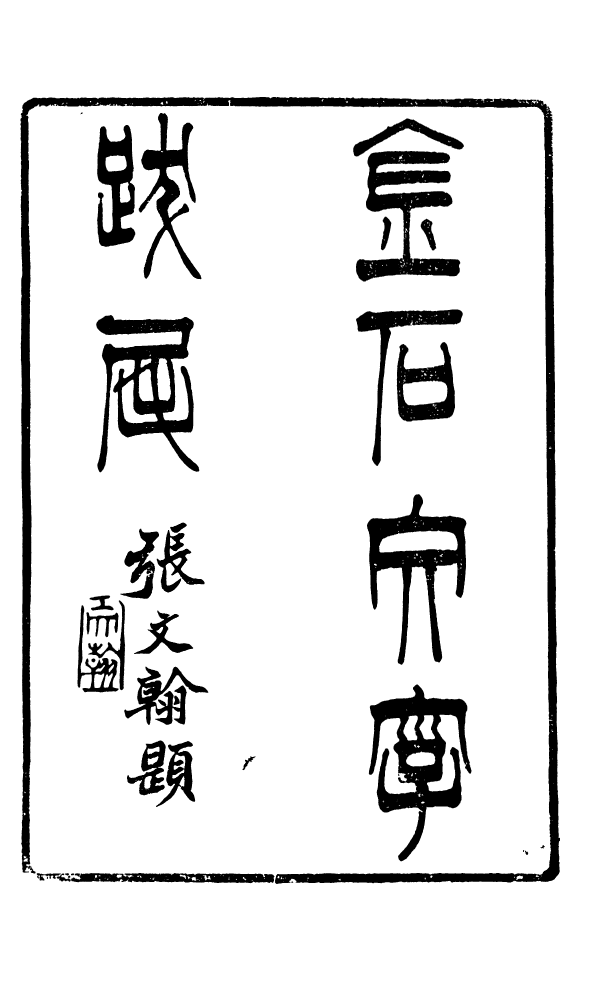 金石文字
跋尾
張文翰題